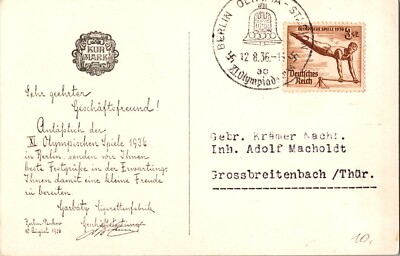 KUR
MARK
Sehr geehrter
Geschäftsfreund!
Anläßlich der
XI. Olympischen Spiele 1936
in Berlin, senden wir Ihnen
beste Festgrüße in der Erwartung,
Ihnen damit eine kleine Freude
zu bereiten.
Garbáty Cigarettenfabrik
Berlin-Pankow
August 1936
BERLIN OLYMPIA-STADION
12.8.36
ac
XI. Olympiade
OLYMPISCHE SPIELE 1936
Deutsches
Reich
Gebr. Krämer Nachf.
Inh. Adolf Macholdt
Grossbreitenbach /Thür.
10.